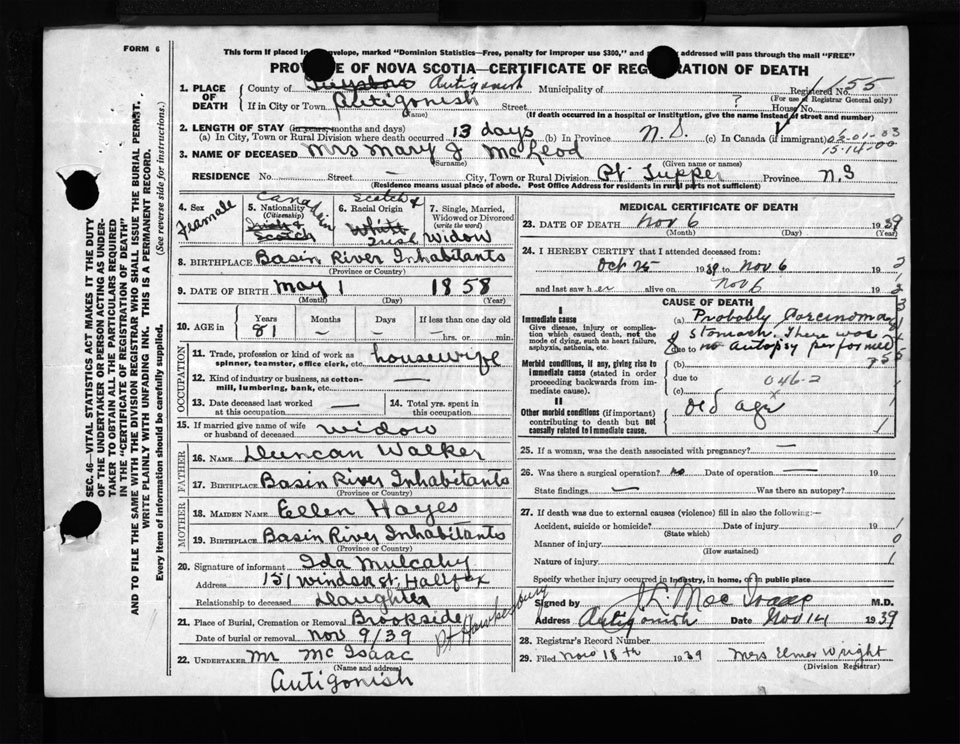 FORM 6
This form if placed in envelope, marked "Dominion Statistics—Free, penalty for improper use $300," and addressed will pass through the mail "FREE"
PROVINCE OF NOVA SCOTIA—CERTIFICATE OF REGISTRATION OF DEATH
1. PLACE OF DEATH County of Antigonish Municipality of Registered No. 1155
(For use of Registrar General only)
If in City or Town Antigonish Street ? House No.
(Name) (If death occurred in a hospital or institution, give the name instead of street and number)
2. LENGTH OF STAY (in years, months and days)
(a) In City, Town or Rural Division where death occurred 13 days (b) In Province N.S. (c) In Canada (if immigrant)
02-01-03
15-14-00
3. NAME OF DECEASED Mrs Mary J McLeod
(Surname) (Given name or names)
RESIDENCE No. Street — City, Town or Rural Division Pt. Tupper Province N.S
(Residence means usual place of abode. Post Office Address for residents in rural parts not sufficient)
4. Sex Female
5. Nationality (Citizenship) Canadian Scotch
6. Racial Origin Scotch & White Irish
7. Single, Married, Widowed or Divorced (write the word) widow
8. BIRTHPLACE Basin River Inhabitants
(Province or Country)
9. DATE OF BIRTH May 1 1858
(Month) (Day) (Year)
10. AGE in Years Months Days If less than one day old
81 — — hrs. or min.
OCCUPATION
11. Trade, profession or kind of work as spinner, teamster, office clerk, etc. housewife
12. Kind of industry or business, as cotton-mill, lumbering, bank, etc. —
13. Date deceased last worked at this occupation — 14. Total yrs. spent in this occupation
15. If married give name of wife or husband of deceased widow
FATHER
16. NAME Duncan Walker
17. BIRTHPLACE Basin River Inhabitants
(Province or Country)
MOTHER
18. MAIDEN NAME Ellen Hayes
19. BIRTHPLACE Basin River Inhabitants
(Province or Country)
20. Signature of informant Ida Mulcahy
Address 151 Windsor St. Halifax
Relationship to deceased Daughter
21. Place of Burial, Cremation or Removal Brookside Pt Hawkesbury
Date of burial or removal Nov 9/39
22. UNDERTAKER Mr McIsaac
(Name and address)
Antigonish
MEDICAL CERTIFICATE OF DEATH
23. DATE OF DEATH Nov 6 1939
(Month) (Day) (Year)
24. I HEREBY CERTIFY that I attended deceased from:
Oct 25 1939 to Nov 6 193
and last saw her alive on Nov 6 193
CAUSE OF DEATH
I
Immediate cause
Give disease, injury or complication which caused death, not the mode of dying, such as heart failure, asphyxia, asthenia, etc.
(a) Probably Carcinoma
stomach. There was
due to no Autopsy performed
Morbid conditions, if any, giving rise to immediate cause (stated in order proceeding backwards from immediate cause).
(b)
due to 046-2
(c)
II
Other morbid conditions (if important) contributing to death but not causally related to immediate cause.
old age
25. If a woman, was the death associated with pregnancy? —
26. Was there a surgical operation? no Date of operation — 19
State findings — Was there an autopsy?
27. If death was due to external causes (violence) fill in also the following:—
Accident, suicide or homicide? Date of injury 19
(State which)
Manner of injury
(How sustained)
Nature of injury
Specify whether injury occurred in industry, in home, or in public place
Signed by M.D.
Address Antigonish Date Nov 14 1939
28. Registrar's Record Number
29. Filed Nov 18th 1939 Mrs Elmer Wright
(Division Registrar)
SEC. 46—VITAL STATISTICS ACT MAKES IT THE DUTY
OF THE UNDERTAKER OR PERSON ACTING AS UNDER-
TAKER TO OBTAIN ALL THE PARTICULARS REQUIRED
IN THE "CERTIFICATE OF REGISTRATION OF DEATH"
AND TO FILE THE SAME WITH THE DIVISION REGISTRAR WHO SHALL ISSUE THE BURIAL PERMIT.
WRITE PLAINLY WITH UNFADING INK. THIS IS A PERMANENT RECORD.
Every item of information should be carefully supplied. (See reverse side for instructions.)